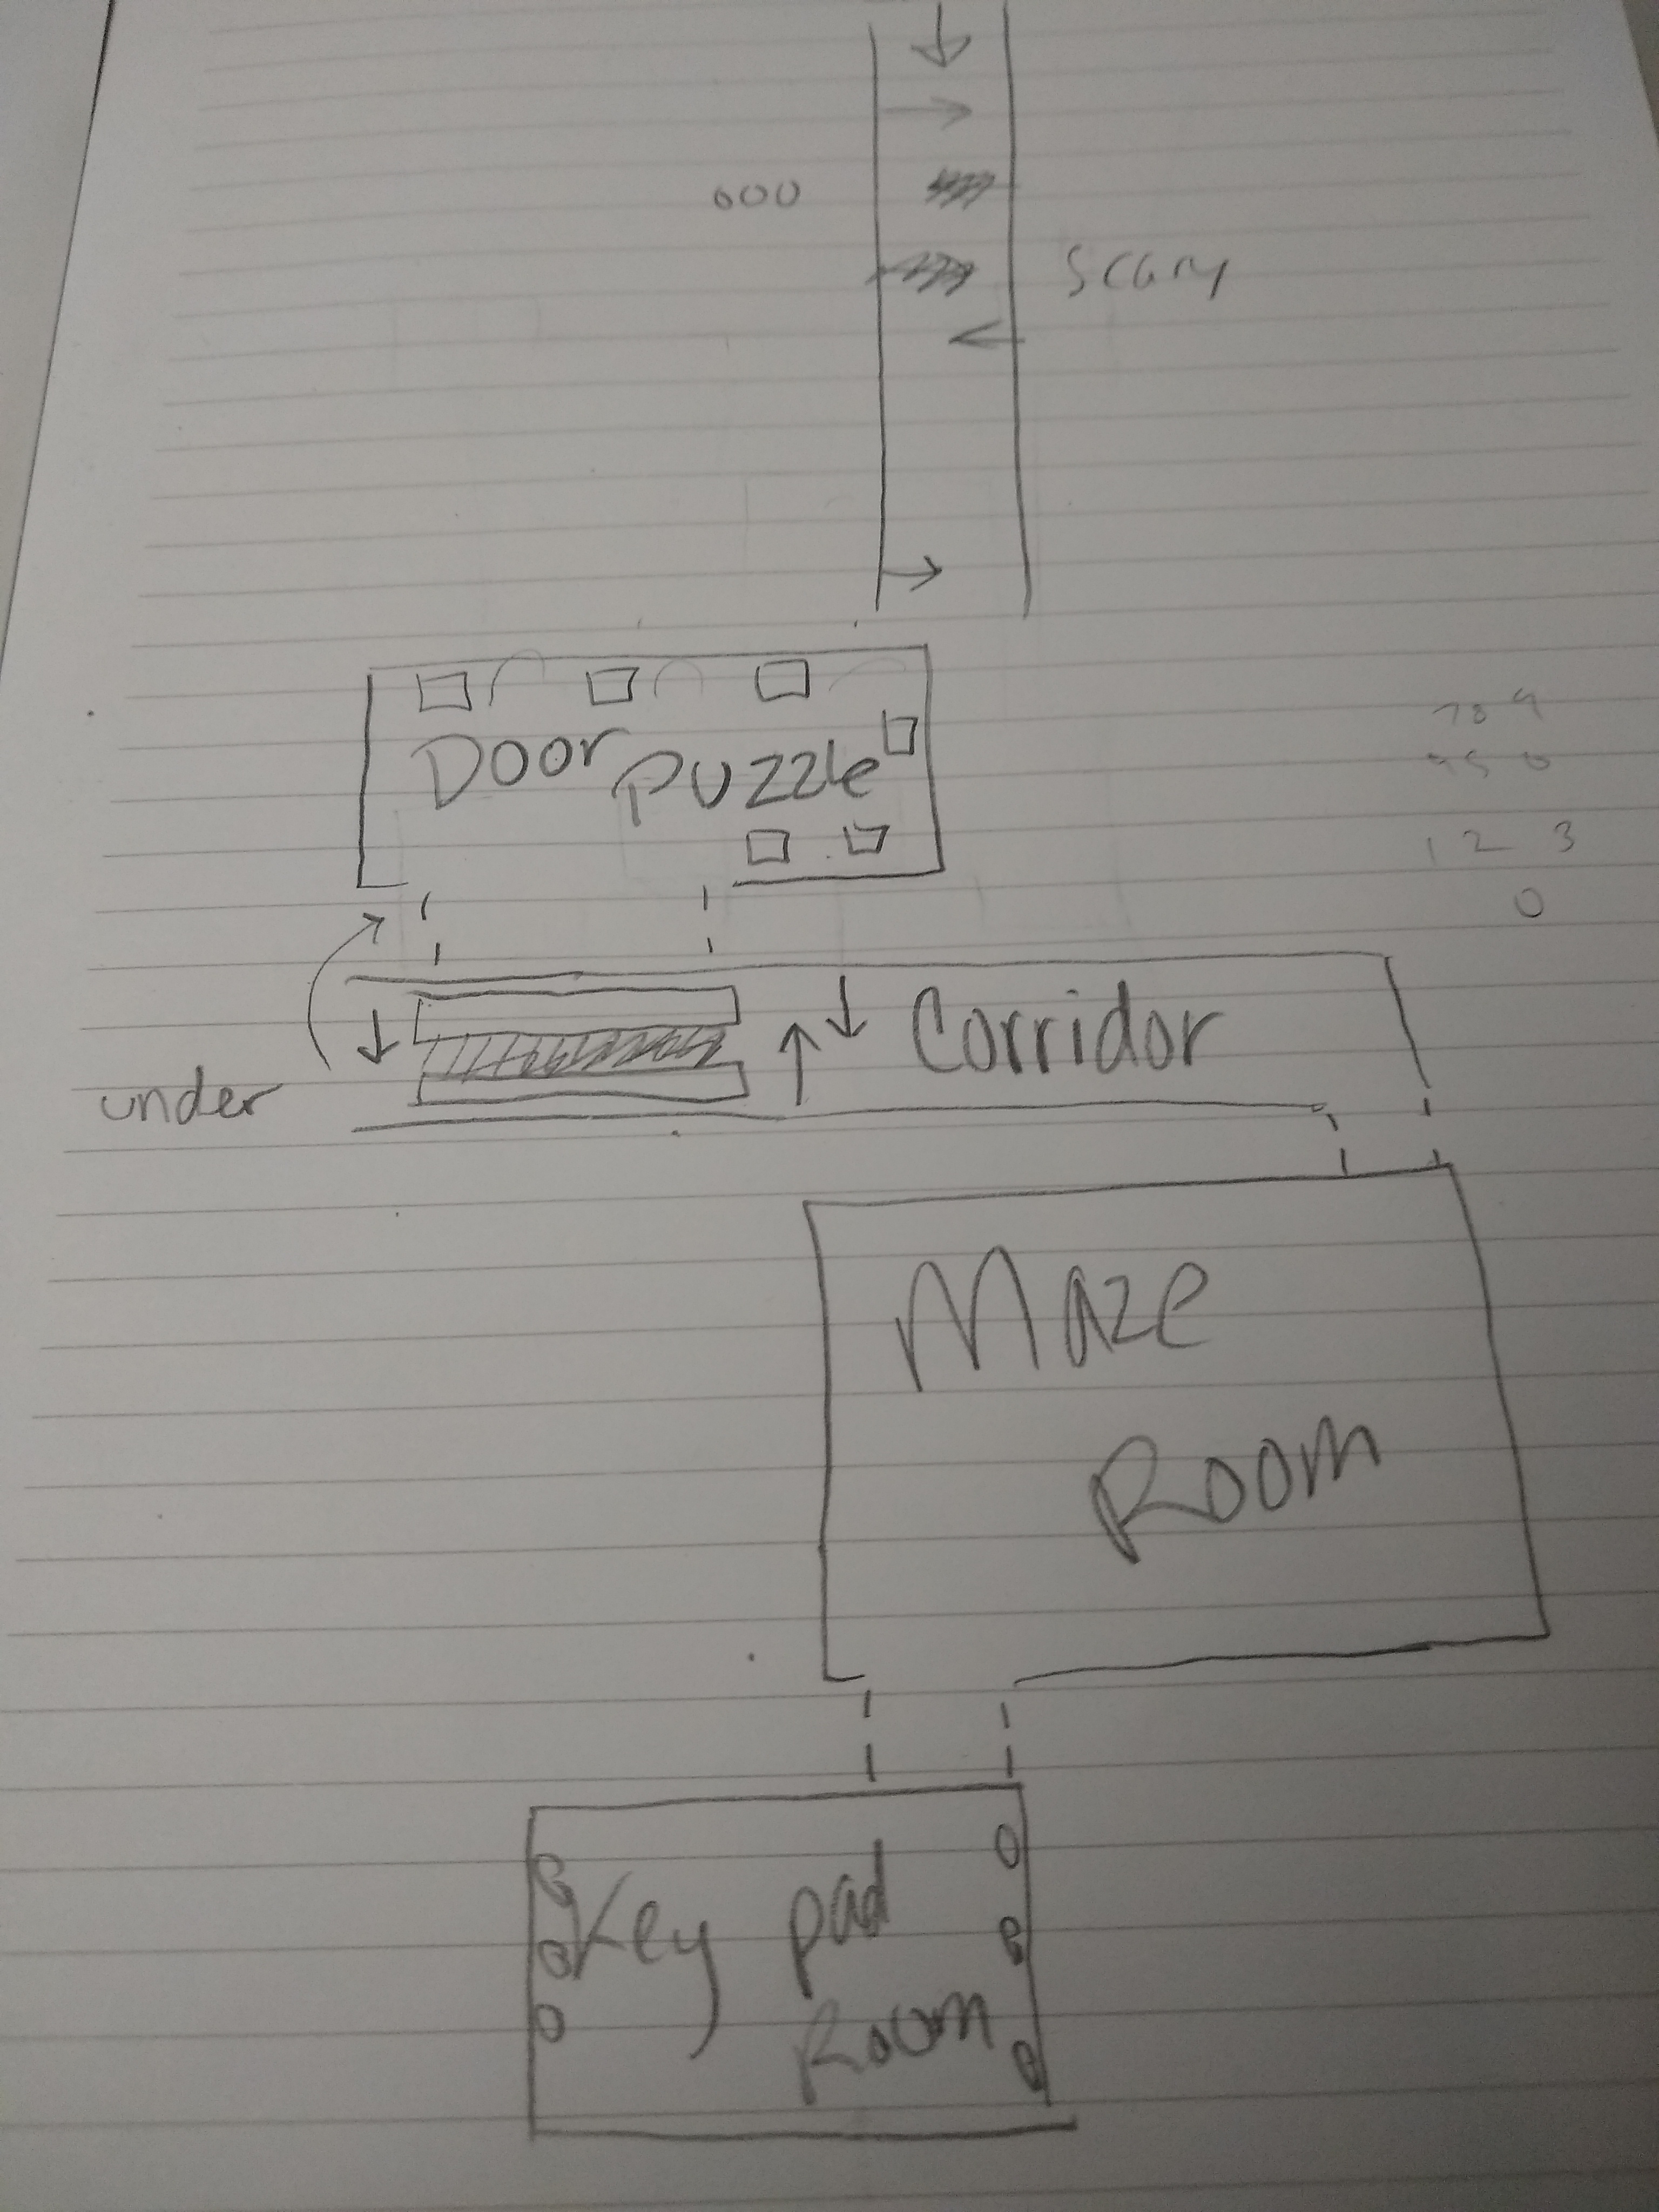 000
Scary
Door Puzzle
7 8 9
1 2 3
0
Corridor
under
Maze
Room
Key pad
Room